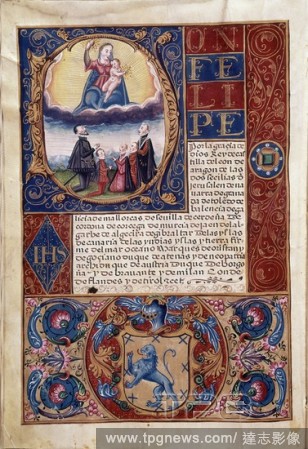 DON
FELIPE
Por la graçia de
dios Rey de cas
tilla de leon de
aragon de las
dos secilias d
jerusalen de na
uarra de grana
da de toledo de
balençia de ga
lisia de mallorcas de seuilla de cerdeña De
cordoua de corcega de murcia de jaen del al-
garbe de algezira de gibraltar De las yslas
de canaria de las yndias yslas y tierra firme
del mar oceano
de atenas y de neopatria
archiduque de austria Duque De Borgo
ña y de brauante y de milan Conde
de flandes y de tirol &c
IHS
www.tpgnews.com/ 達志影像